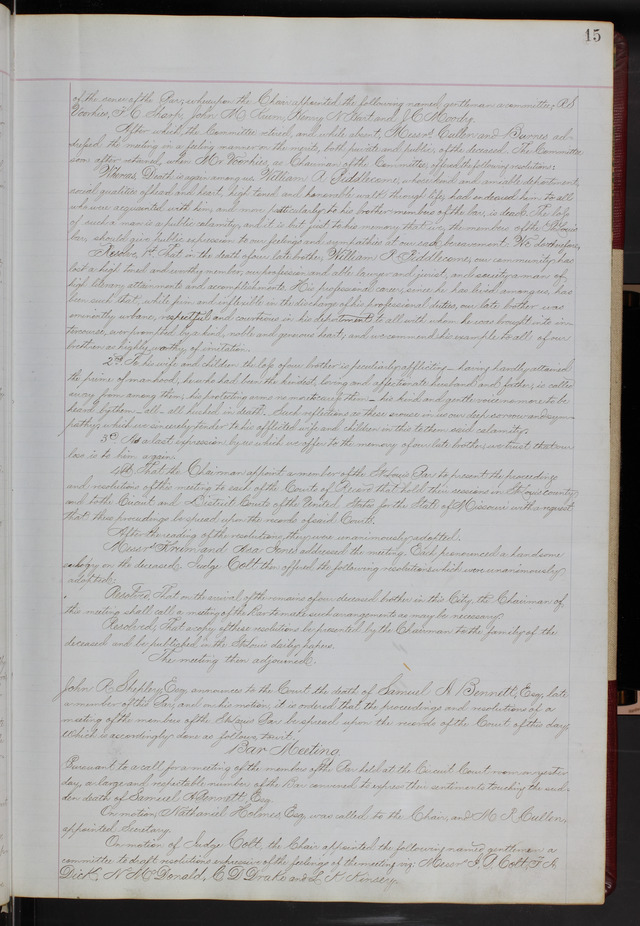 15
of the Bar; whereupon the Chair appointed the following named gentleman a committee; R S
Voorhies, F. C. Sharp, John M. Krum, Henry N. Hart and J C Moody.
After which the Committee retired, and while absent, Messrs Cullen and Burnes ad-
dressed the meeting in a feeling manner on the merits, both private and public, of the deceased. The Committee
soon after returned, when Mr Voorhies, as Chairman of the Committee, offered the following resolutions:
Whereas, Death is again among us, William A. Piddlecome, whose kind and amiable department,
social qualities of head and heart, high toned and honorable walk through life, had endeared him to all
who were acquainted with him, and more particularly to his brother members of the bar, is dead. The loss
of such a man is a public calamity, and it is but just to his memory that we, the members of the St Louis
bar, should give public expression to our feelings and sympathies at our sad bereavement. We do therefore,
Resolve, 1st That in the death of our late brother, William A. Piddlecome, our community has
lost a high toned and worthy member, our profession and able lawyer and jurist, and society a man of
high literary attainments and accomplishments. His professional career, since he has lived among us, has
been such that, while firm and inflexible in the discharge of his professional duties, our late brother was
eminently urbane, respectful and courteous in his department to all with whom he was brought into in-
tercourse, as prompted by a kind, noble and generous heart; and we commend his example to all of our
brothers as highly worthy of imitation.
2d. To his wife and children the loss of our brother is peculiarly afflicting - having hardly attained
the prime of manhood, he who had been the kindest, loving and affectionate husband and father, is called
away from among them; his protecting arms no more to cover them - his kind and gentle voice no more to be
heard by them - all - all hushed in death. Such reflections as these arouse in us our deep sorrow and sym-
pathy, which we sincerely tender to his afflicted wife and children in this to them said calamity.
3d As a last expression by us which we offer to the memory of our late brother, we trust that our
loss is to him again.
4th That the Chairman appoint a member of the St Louis Bar to present the proceedings
and resolutions of this meeting to each of the Courts of Record that hold their sessions in St Louis County,
and to the Circuit and District Courts of the United States for the State of Missouri with a request
that these proceedings be spread upon the records of said Courts.
After the reading of the resolutions, they were unanimously adopted.
Messrs Krum and Asa Jones addressed the meeting. Each pronounced a handsome
eulogy on the deceased. Judge Colt then offered the following resolutions which were unanimously
adopted:
Resolved, That on the arrival of the remains of our deceased brother in this City, the Chairman of
this meeting shall call a meeting of the Bar to make such arrangements as may be necessary.
Resolved, That a copy of these resolutions be presented by the Chairman to the family of the
deceased and be published in the St Louis daily papers.
The meeting then adjourned.
John R. Shepley, Esq, announces to the Court the death of Samuel N Bennett, Esq, late
a member of this Bar; and on his motion, it is ordered that the proceedings and resolutions of a
meeting of the members of the St Louis Bar be spread upon the records of the Court of this day
Which is accordingly done as follows, to wit,
Bar Meeting
Pursuant to a call for a meeting of the members of the Bar held at the Circuit Court room on yester-
day, a large and respectable number of the Bar convened to express their sentiments touching the sud-
den death of Samuel N Bennett Esq.
On motion Nathaniel Holmes, Esq, was called to the Chair, and M. F. Cullen,
appointed Secretary.
On motion of Judge Colt, the Chair appointed the following named gentlemen a
committee to draft resolutions expressive of the feelings of the meeting viz: Messrs J. D. Colt, F A
Dick, N McDonald, C D Drake and L H Kinsey.